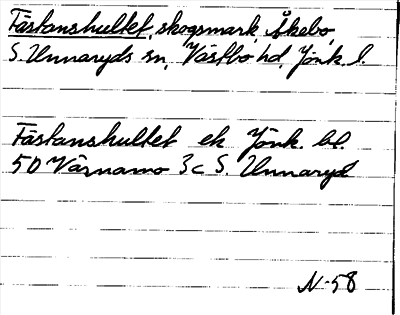 Fästanshultet, skogsmark, Åkebo,
S. Unnaryds sn, Västbo hd, Jönk. l.
Fästanshultet ek Jönk. bl.
5D Värnamo 3c S. Unnaryd
N-58